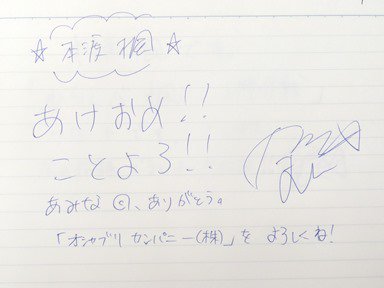 ☆ 本渡 楓 ☆
あけおめ!!
ことよろ!!
あみな©、ありがとう。
「オシャブリカンパニー(株)」を よろしくね!